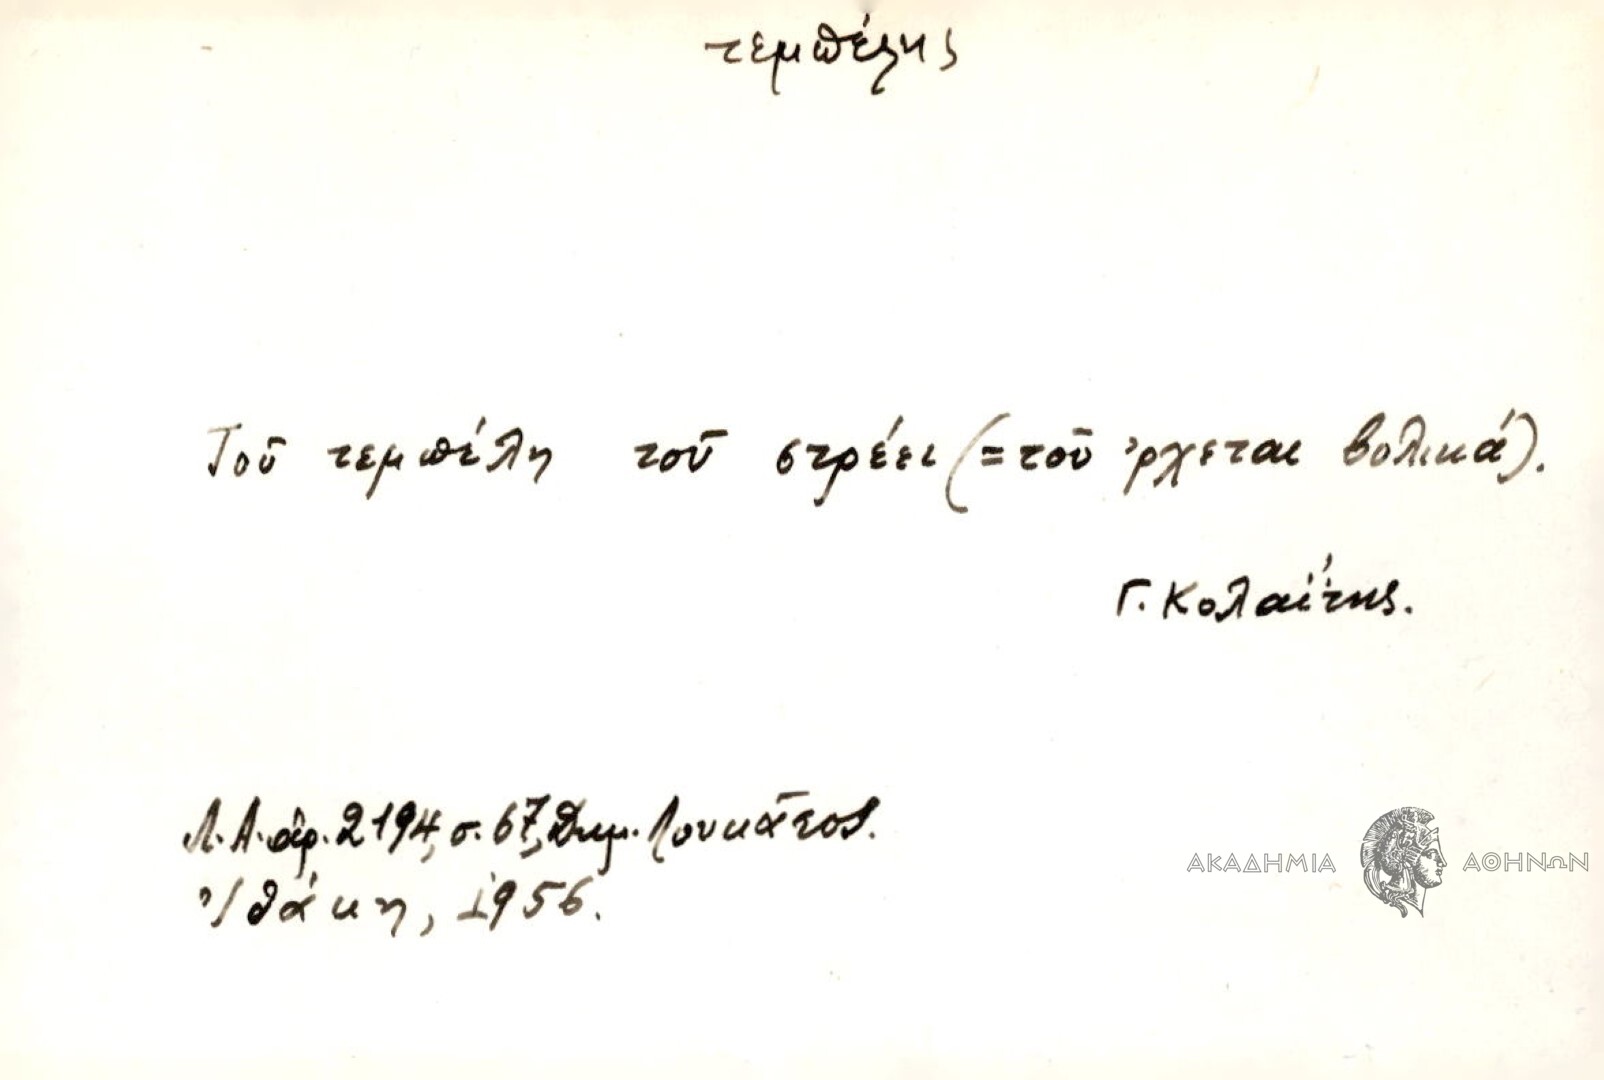 τεμπέλης
Τοῦ τεμπέλη τοῦ στρέει (=τοῦ 'ρχεται βολικά).
Γ. Κολαΐτης.
Λ.Α. ἀρ. 2194, σ. 67, Δημ. Λουκᾶτος.
Ἰθάκη, 1956.
ΑΚΑΔΗΜΙΑ ΑΘΗΝΩΝ